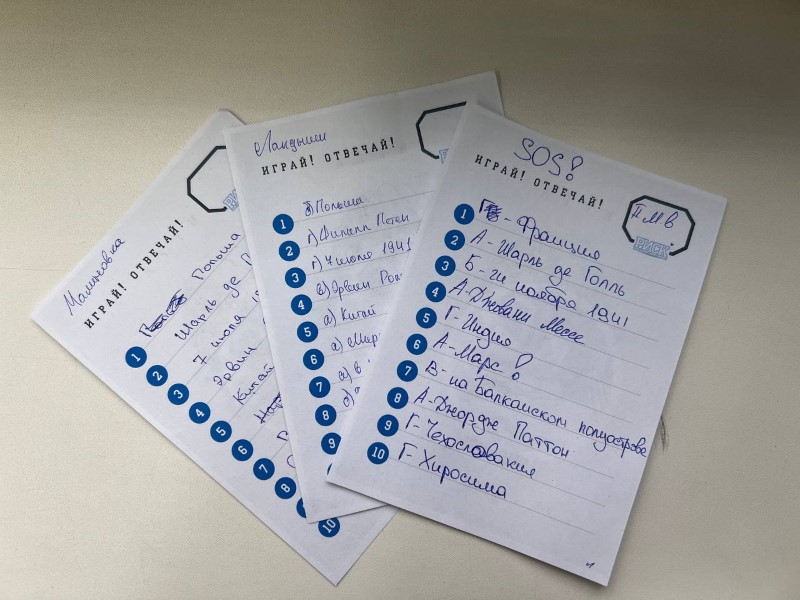 Малиновка
ИГРАЙ! ОТВЕЧАЙ!
1 Польша
2 Шарль де
3 7 июля
4 Эрвин
5 Китай
6
7
8
10
Ландыши
ИГРАЙ! ОТВЕЧАЙ!
1 б) Польша
2 г) Филипп Петен
3 г) 7 июля 1941
4 в) Эрвин
5 а) Китай
6 а)
7 а) в
8
9
10
SOS!
ИГРАЙ! ОТВЕЧАЙ!
IIМВ
РИСК
1 - Франция
2 А - Шарль де Голль
3 Б - ги ноября 1941
4 А - Джовани Мессе
5 Г - Индия
6 А - Марс!
7 В - на Балканском полуострове
8 А - Джордж Паттон
9 Г - Чехословакия
10 Г - Хиросима